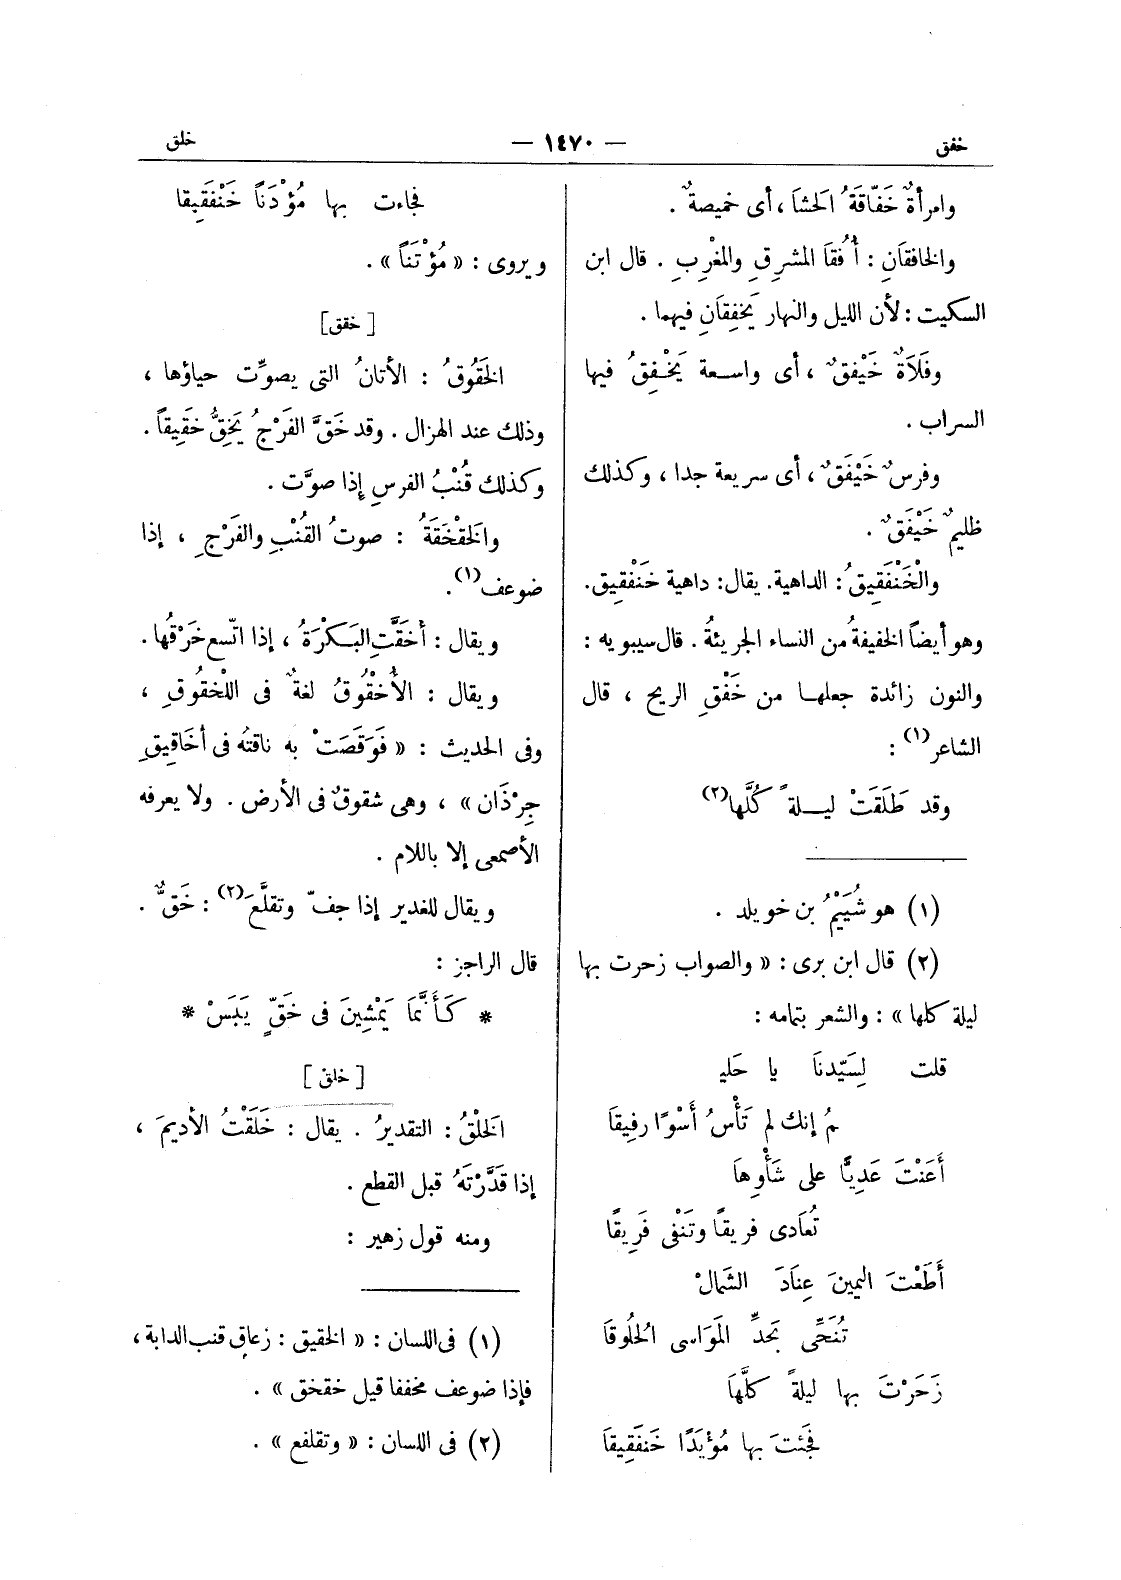 خفق — ١٤٧٠ — خلق
وامرأةٌ خَفّاقَةُ الحشَا ، أى خميصةٌ .
والخافقَانِ : أُفُقَا المشرِقِ والمغْرِبِ . قال ابن
السكيت : لأن الليل والنهار يَخفِقَانِ فيهما .
وفَلَاةٌ خَيْفقٌ ، أى واسعة يَخْفِقُ فيها
السراب .
وفرسٌ خَيْفَقٌ ، أى سريعة جدا ، وكذلك
ظليمٌ خَيْفَقٌ .
والْخَنْفَقِيقُ : الداهية. يقال: داهية خَنْفَقِيق.
وهو أيضاً الخفيفةُ من النساء الجريئةُ . قال سيبويه :
والنون زائدة جعلها من خَفْقِ الريح ، قال
الشاعر(١) :
وقد طَلَقَتْ ليلةً كُلَّها(٢)
(١) هو شُيَيْمُ بن خويلد .
(٢) قال ابن برى : « والصواب زحرت بها
ليلة كلها » : والشعر بتمامه :
قلت لِسَيّدنَا يا حَليـ
مُ إنك لم تَأْسُ أَسْوًا رفِيقَا
أَعَنْتَ عَدِيًّا على شَأْوِهَا
تُعَادى فريقًا وتَنْفى فَرِيقًا
أَطَعْتَ اليمينَ عِنَادَ الشَمَالْ
تُنَحِّى بَحدِّ المَوَاسى الحُلُوقَا
زَحَرْتَ بها ليلةً كلَّهَا
فَجِئتَ بها مُؤيَدًا خَنفَقِيقَا
فجاءت بها مُؤْدَناً خَنْفَقِيقا
ويروى : « مُؤْتَناً » .
[ خقق ]
الخَقُوقُ : الأتانُ التى يصوِّت حياؤها ،
وذلك عند الهزال . وقد خَقَّ الفَرْجُ يَخِقُّ خقِيقاً .
وكذلك قُنْبُ الفرسِ إذا صوَّت .
والخَقْخَقَةُ : صوتُ القُنْبِ والفَرْجِ ، إذا
ضوعف(١) .
ويقال : أخَقَّتِ البَكْرَةُ ، إذا اتّسع خَرْقُها .
ويقال : الأُخْقُوقُ لغةٌ فى اللْخقُوقِ ،
وفى الحديث : « فوَقَصَتْ به ناقتُه فى أخَاقيقِ
جِرْذَان » ، وهى شقوقٌ فى الأرض . ولا يعرفه
الأصمعى إلا باللام .
ويقال للغدير إذا جفّ وتقلَّعَ(٢) : خَقٌّ .
قال الراجز :
* كَأَنَّمَا يَمْشِينَ فى خَقٍّ يَبَسْ *
[ خلق ]
الخلْقُ : التقديرُ . يقال : خَلَقْتُ الأديمَ ،
إذا قَدَّرْتَهُ قبل القطع .
ومنه قول زهير :
(١) فى اللسان : « الخقيق : زعاق قنب الدابة ،
فإذا ضوعف مخففا قيل خقخق » .
(٢) فى اللسان : « وتقلفع » .